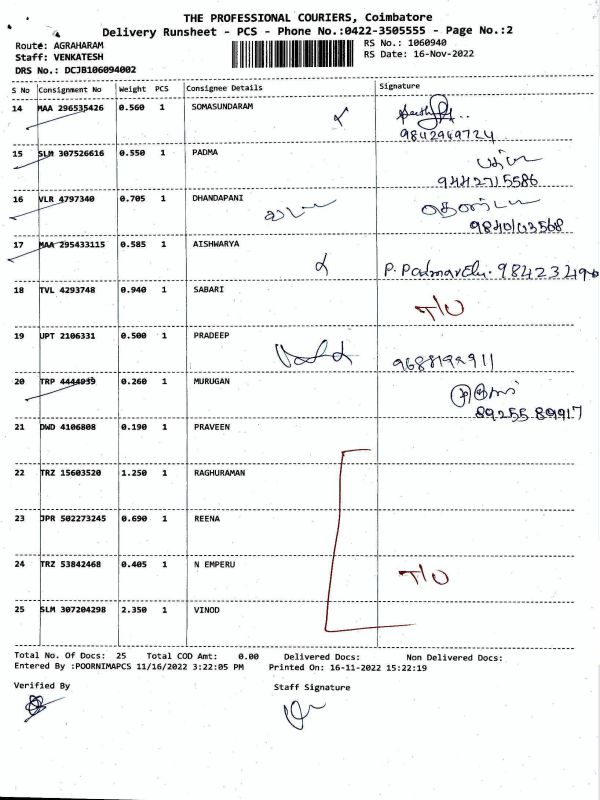 THE PROFESSIONAL COURIERS, Coimbatore
Delivery Runsheet - PCS - Phone No.:0422-3505555 - Page No.:2
Route: AGRAHARAM RS No.: 1060940
Staff: VENKATESH RS Date: 16-Nov-2022
DRS No.: DCJB106094002
S No Consignment No Weight PCS Consignee Details Signature
14 MAA 296535426 0.560 1 SOMASUNDARAM
9842969724
15 SLM 307526616 0.550 1 PADMA பத்மா
9442715586
16 VLR 4797340 0.705 1 DHANDAPANI
17 MAA 295433115 0.585 1 AISHWARYA P. Padmavathi.
18 TVL 4293748 0.940 1 SABARI T/U
19 UPT 2106331 0.500 1 PRADEEP
20 TRP 4444939 0.260 1 MURUGAN
89255 89917
21 DWD 4106808 0.190 1 PRAVEEN
22 TRZ 15603520 1.250 1 RAGHURAMAN
23 JPR 502273245 0.690 1 REENA
24 TRZ 53842468 0.405 1 N EMPERU T/U
25 SLM 307204298 2.350 1 VINOD
Total No. Of Docs: 25 Total COD Amt: 0.00 Delivered Docs: Non Delivered Docs:
Entered By :POORNIMAPCS 11/16/2022 3:22:05 PM Printed On: 16-11-2022 15:22:19
Verified By Staff Signature